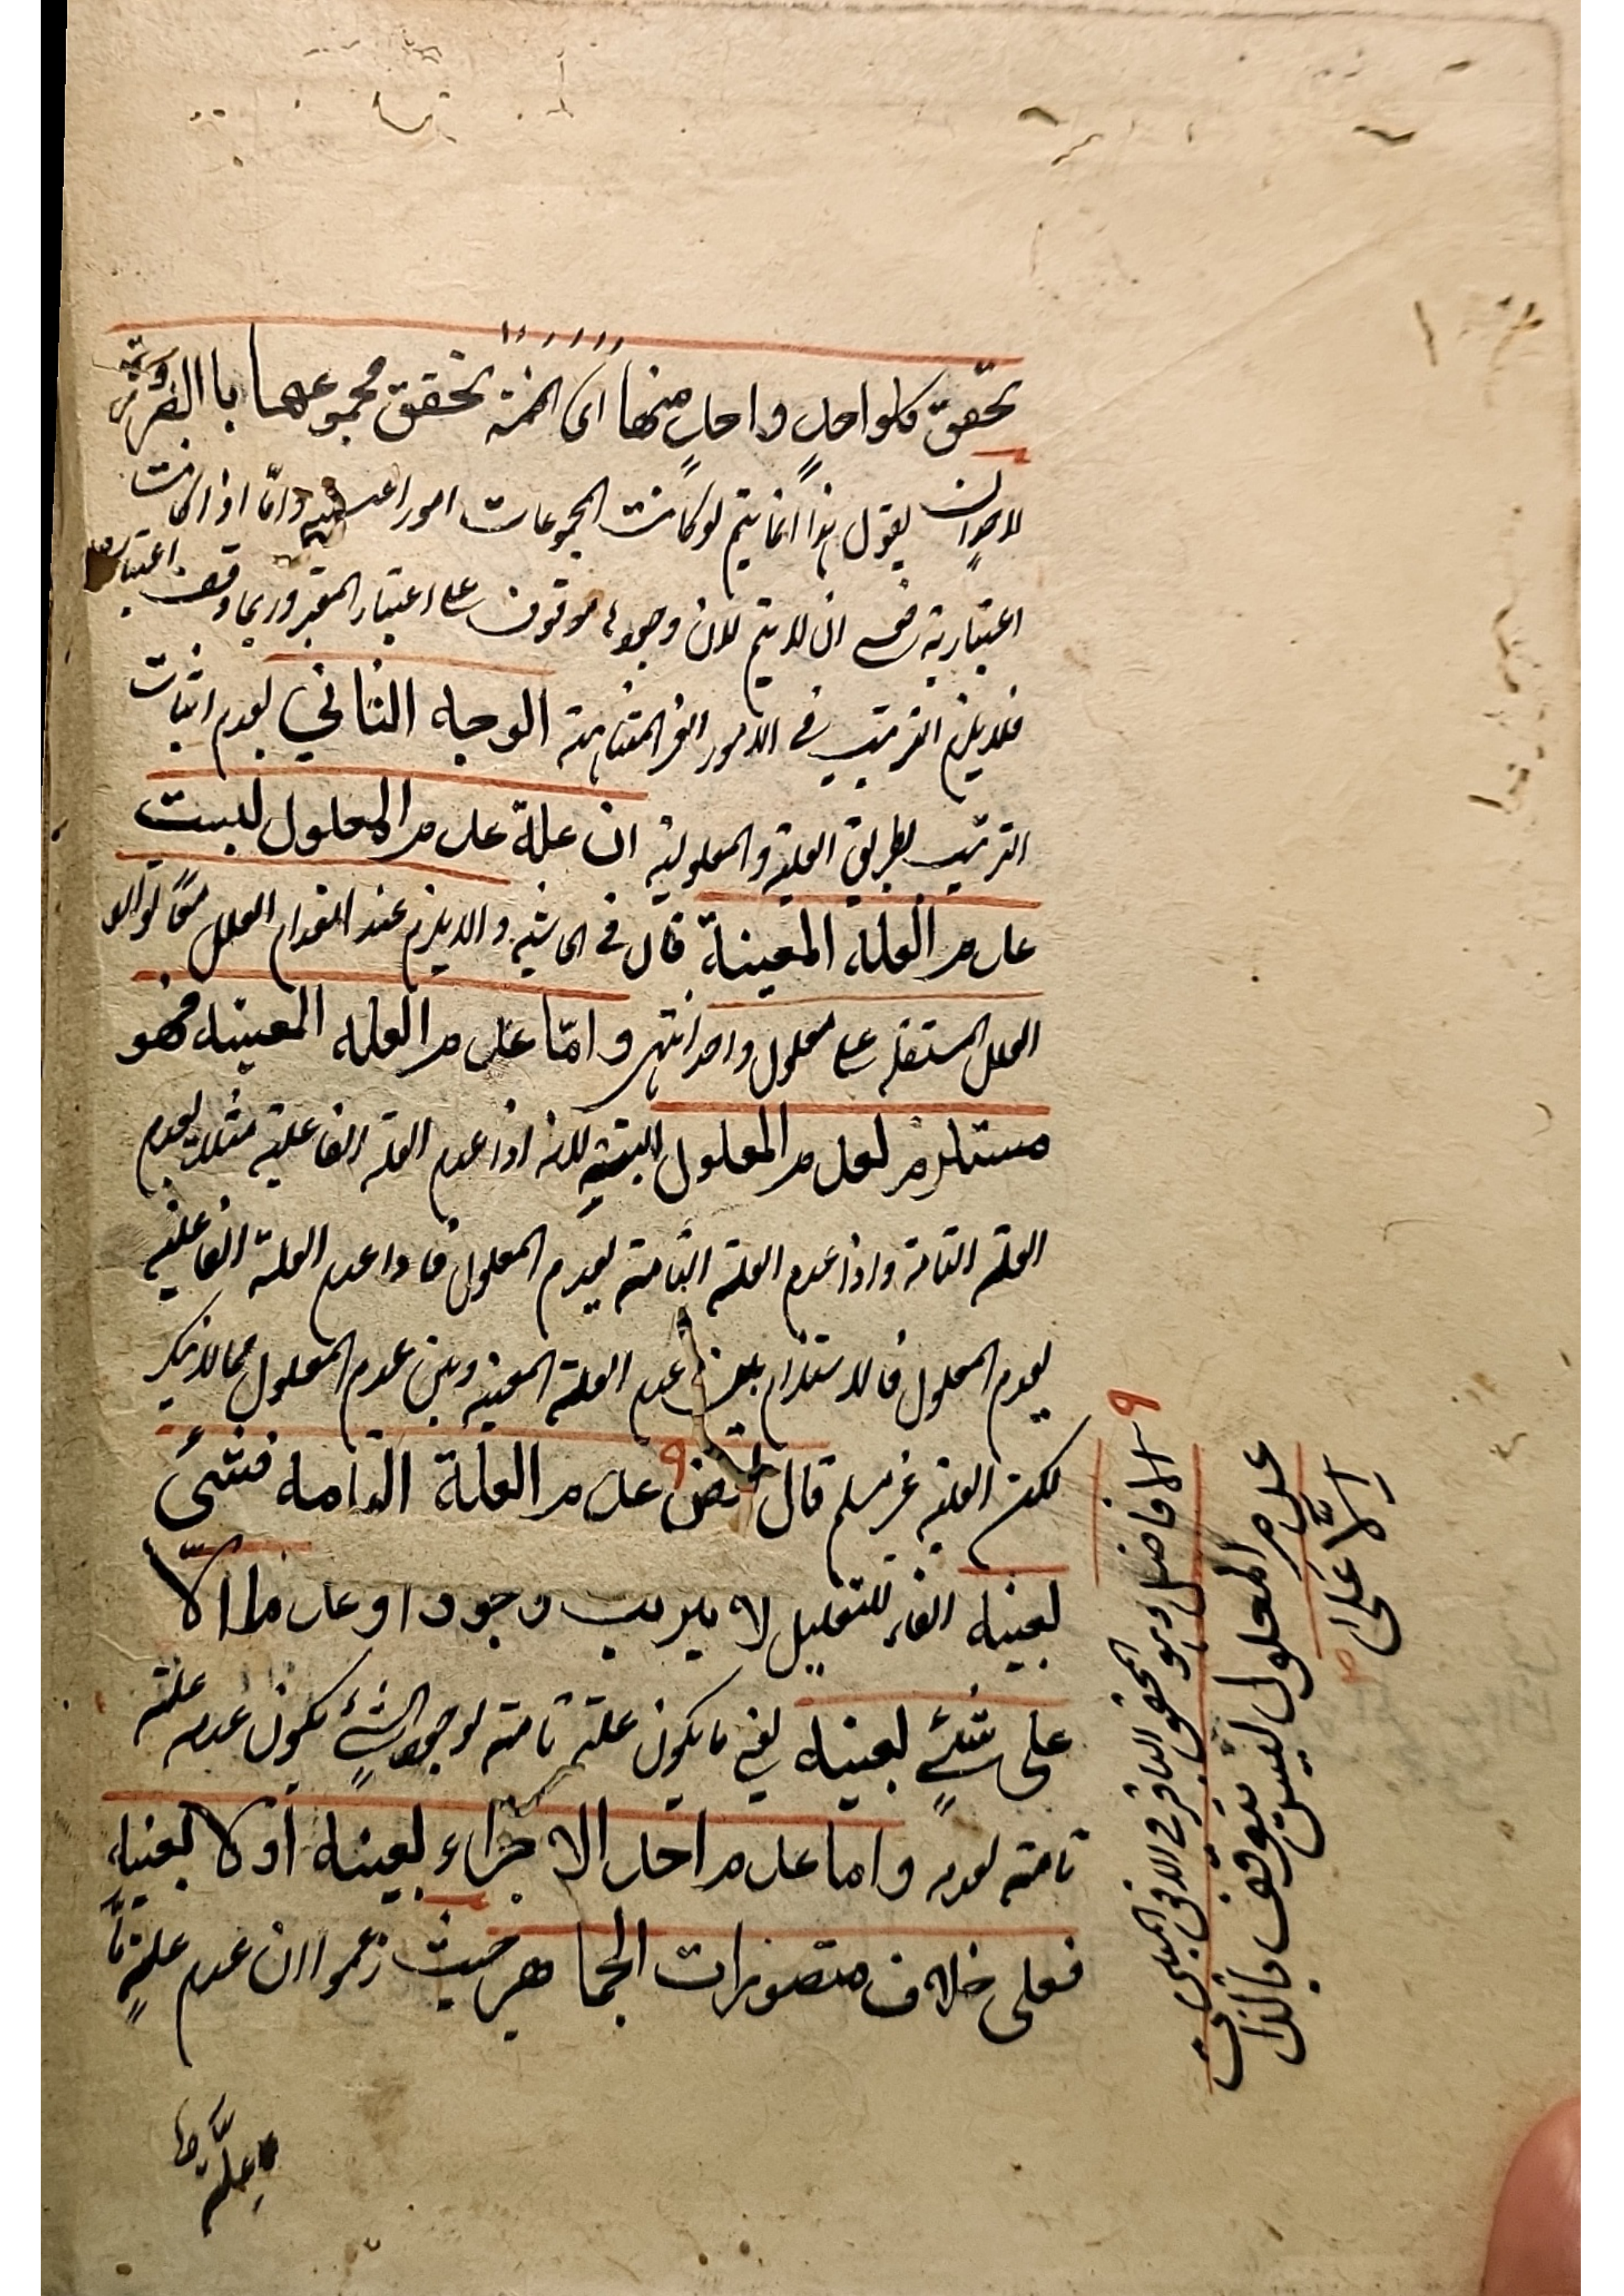 تحقق كلواحدٍ واحدٍ منها اى الخمسة تحقق مجموعها با الضرورة
لاحدٍ ان يقول هذا انما يتم لوكانت المجموعات امورا واما اذا كانت
اعتبارية لا يتم لان وجودها موقوف على اعتبار المعتبر وربما وقف اعتباره
فلا يلزم الترتيب فى الامور الغير المتناهية الوجه الثاني لعدم اثبات
الترتيب بطريق العلية والمعلولية ان علة عدم المعلول ليست
عدم العلة المعينة قال فى الحاشية والا يلزم عند انعدام العلل معًا توارد
العلل المستقلة على معلول واحد انتهى واما عدم العلة المعينة فهو
مستلزم لعدم المعلول البتة لانه اذا عدم العلة الفاعلية مثلا يعدم
العلة التامة واذا عدم العلة التامة يعدم المعلول فاذا عدم العلة الفاعلية
يعدم المعلول فالاستلزام بين عدم العلة المعينة وبين عدم المعلول مما لا ينكر
لكن العلية غير مسلم قال بعض عدم العلة التامة فشئ
بعينه الفاء للتعليل لا يترتب وجودا وعدما الا
على شئٍ بعينه يعنى ما يكون علة تامة لوجود الشئ يكون عدمه علة
تامة لعدمه واما عدم احد الاجزاء بعينه أو لا بعينه
فعلى خلاف متصورات الجماهير حيث زعموا ان عدم علةٍ ما
علة
٩ الافاضل وهو المحقق الباقر فى الافق المبين
عدم المعلول ليس يتوقف بالذات
الّا على